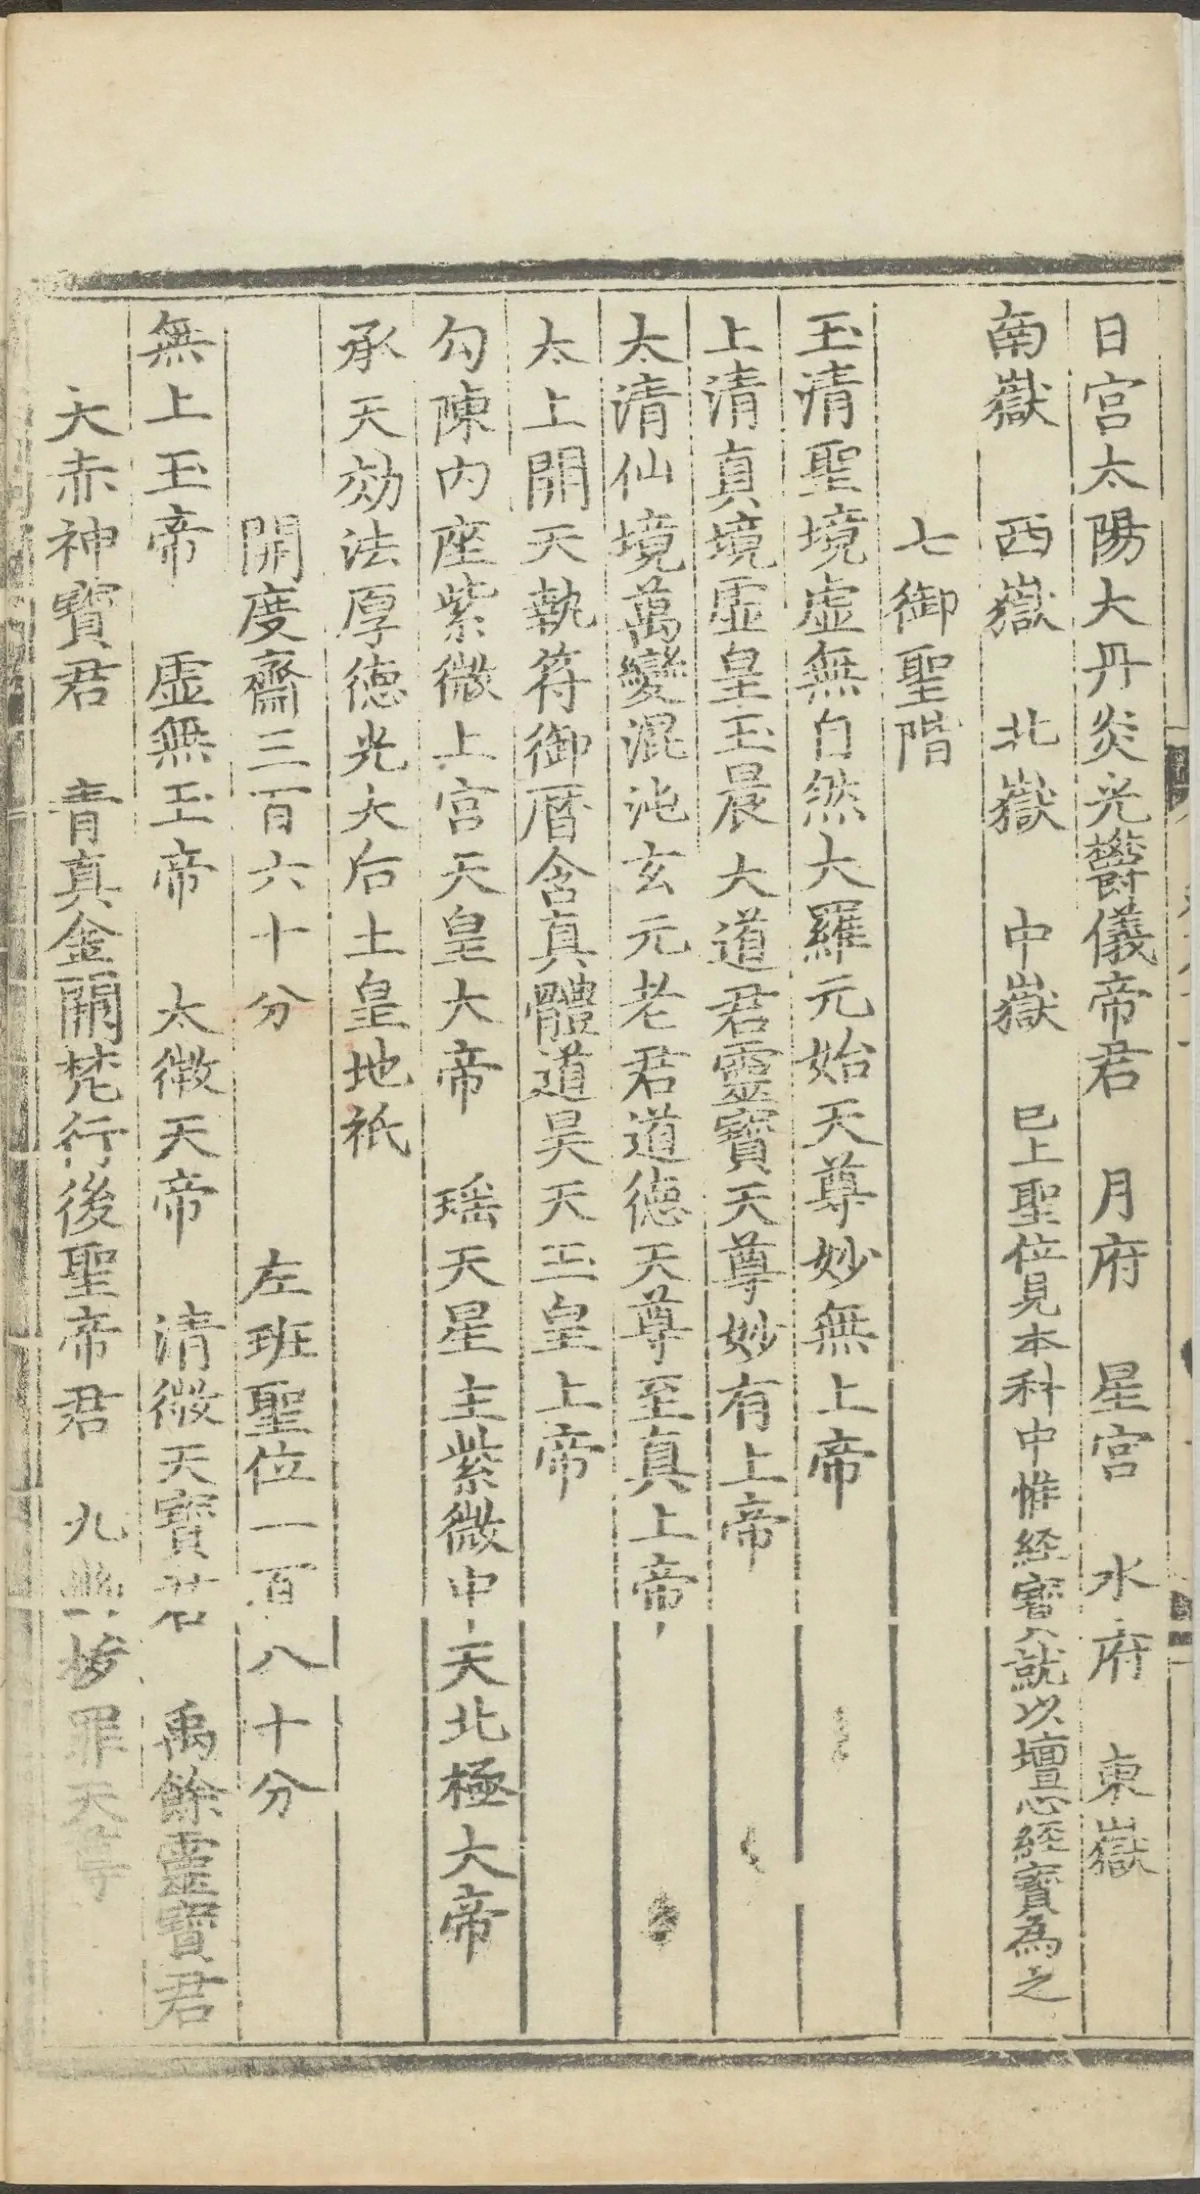 日宮太陽大丹炎光鬱儀帝君　月府　星宮　水府　東嶽
南嶽　西嶽　北嶽　中嶽　已上聖位見本科中惟經寶就以壇思經寶為之
七御聖階
玉清聖境虛無自然大羅元始天尊妙無上帝
上清真境虛皇玉晨大道君靈寶天尊妙有上帝
太清仙境萬變混沌玄元老君道德天尊至真上帝
太上開天執符御曆含真體道昊天玉皇上帝
勾陳內座紫微上宮天皇大帝　瑶天星主紫微中天北極大帝
承天効法厚德光大后土皇地祇
開度齋三百六十分　左班聖位一百八十分
無上玉帝　虛無玉帝　太微天帝　清微天寶君　禹餘靈寶君
大赤神寶君　青真金闕梵行後聖帝君　九罪天尊